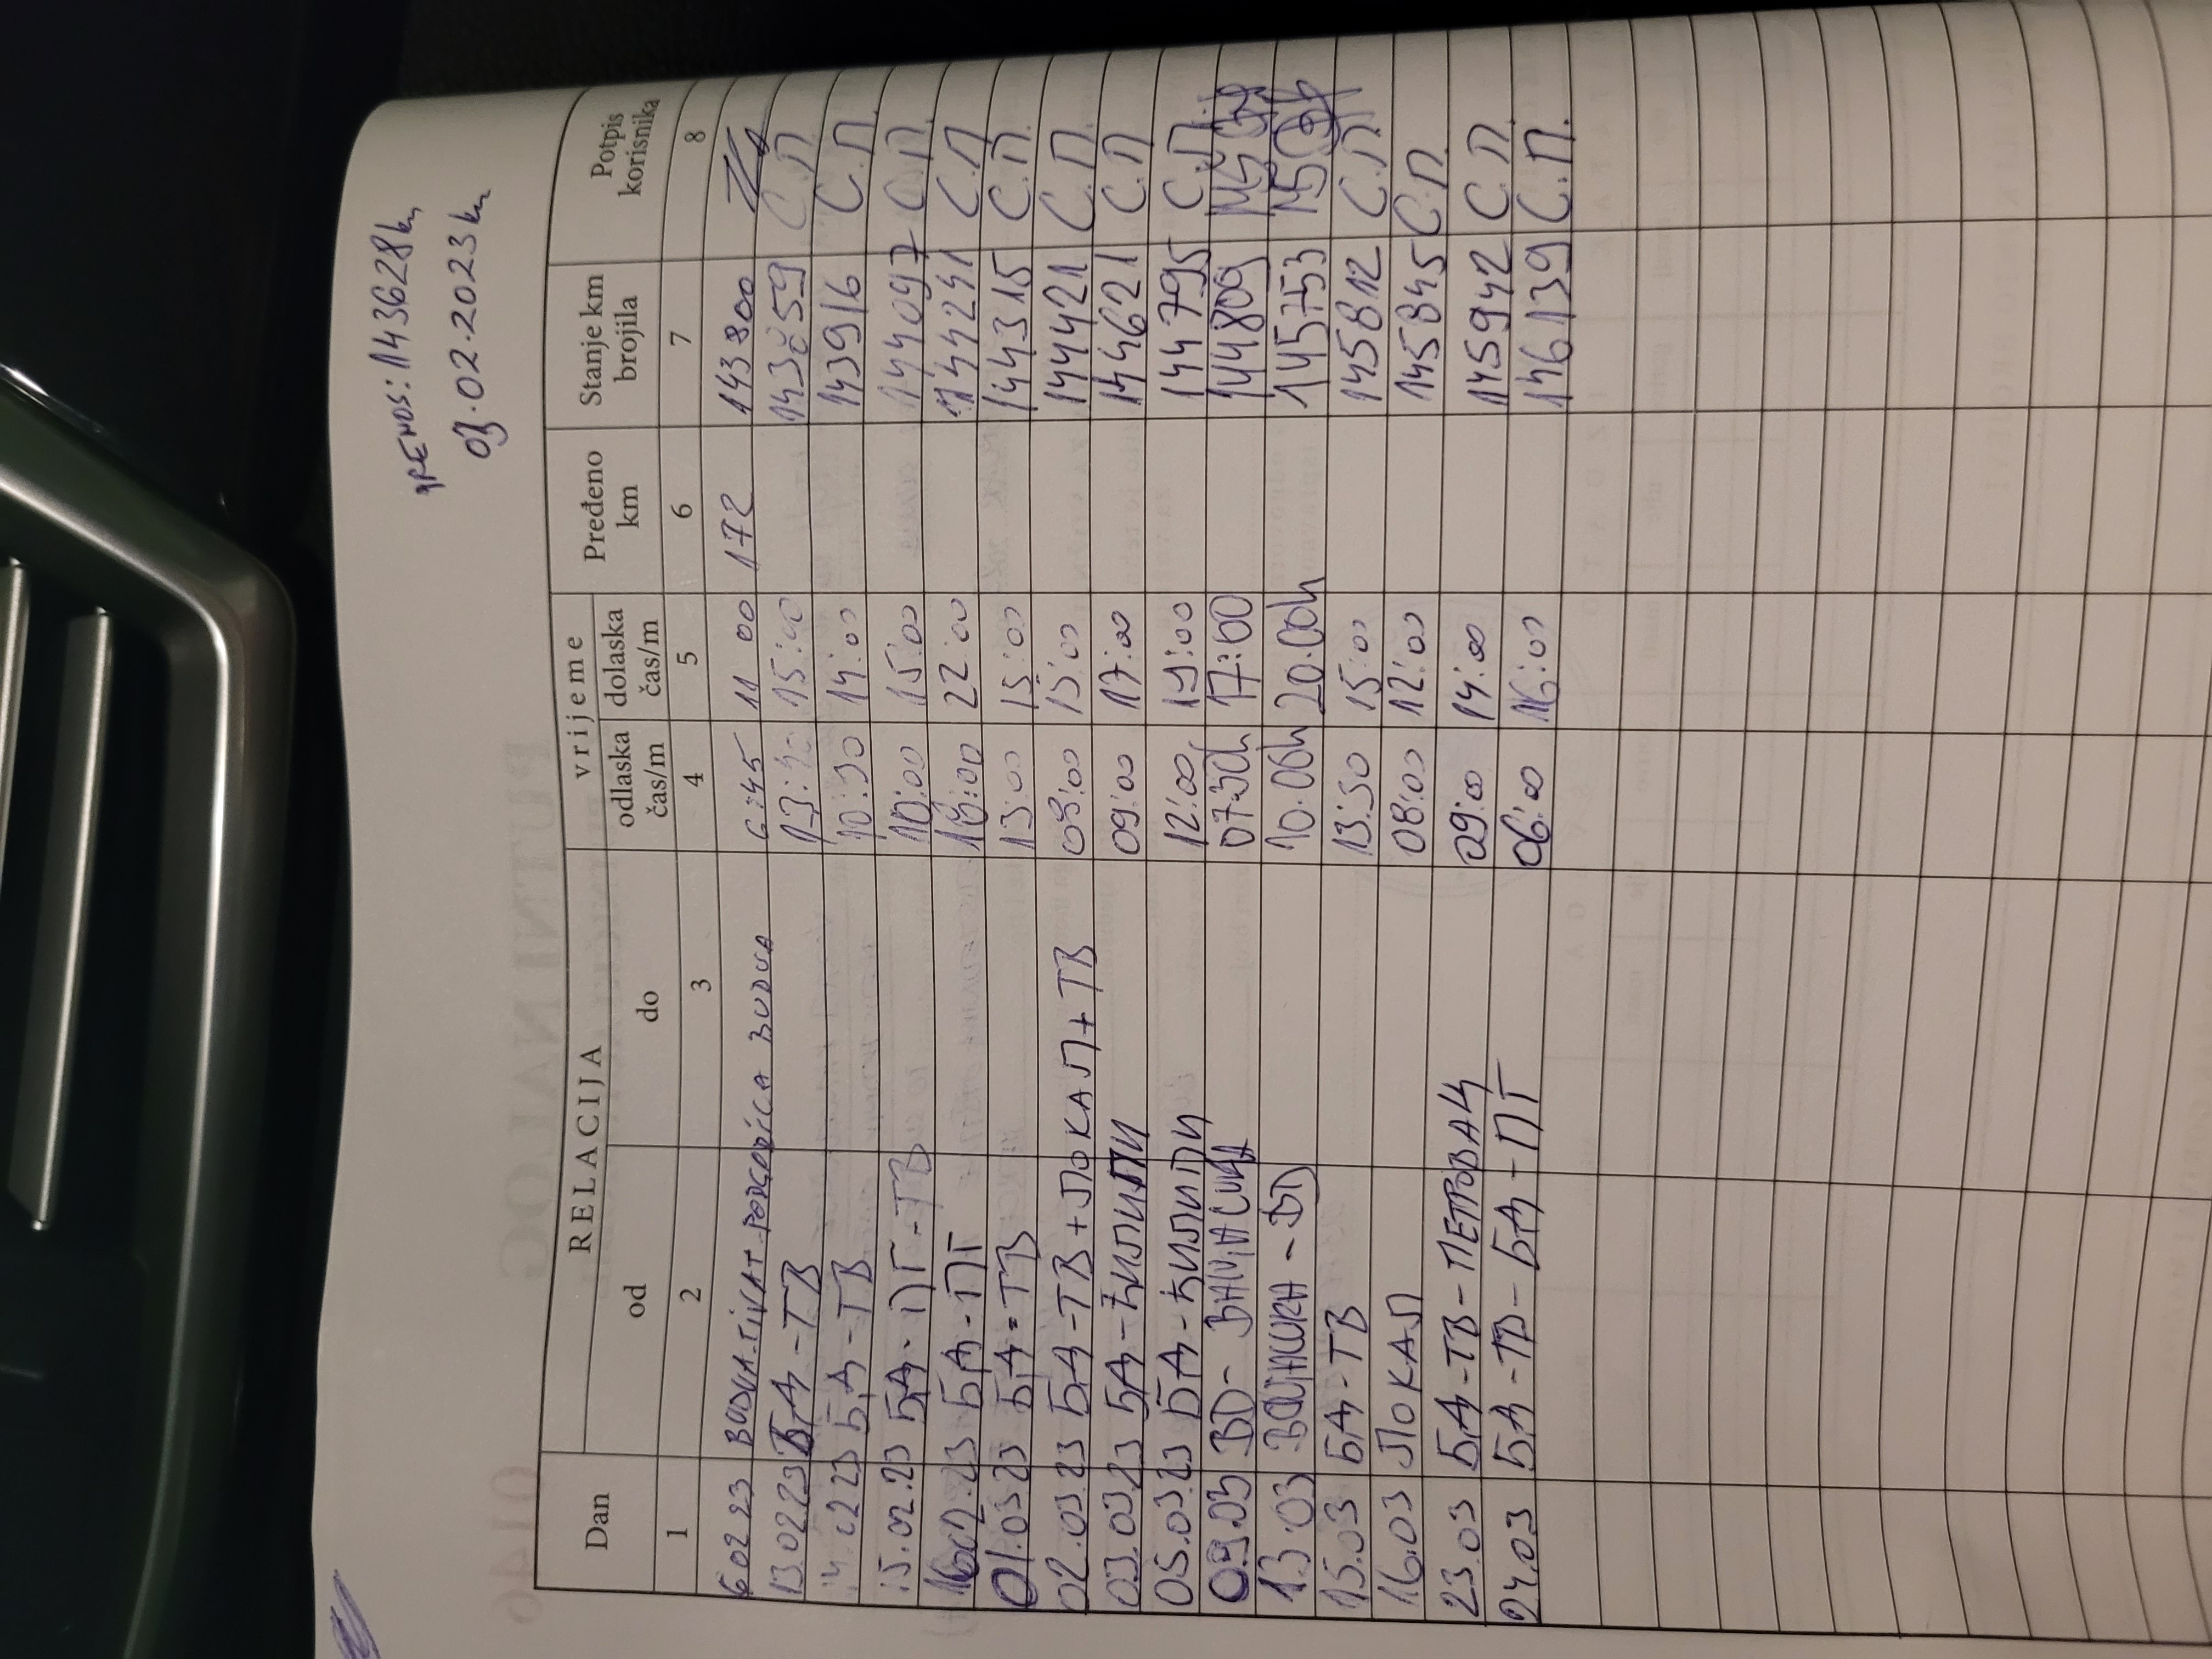 PRENOS: 143628 km
03.02.2023 km
Dan RELACIJA vrijeme Pređeno km Stanje km brojila Potpis korisnika
od do odlaska čas/m dolaska čas/m
1 2 3 4 5 6 7 8
6 02 23 BUDVA-TIVAT-PODGORICA BUDVA 6:45 11 00 172 143 800
13.02 23 БД-ТВ 15:00 143859 С.П
14.02 23 БД-ТВ 10:30 14:00 143916 С.П.
15.02.23 БД-ПГ-ТВ 10:00 15:00 144097 С.П.
16.02.23 БД-ПГ 18:00 22:00 144241 С.П
01.03.23 БД-ТВ 13:00 15:00 144315 С.П.
02.03.23 БД-ТВ+ЛОКАЛ+ТВ 09:00 15:00 144421 С.П
03.03.23 БД-ЋИЛИПИ 09:00 17:00 144621 С.П
05.03.23 БД-ЋИЛИПИ 12:00 19:00 144795 С.П.
09.03 BD- 07:30h 17:00 144809
13.03 -BD 10.00h 20.00h 145753
15.03 БД-ТВ 13:30 15:00 145812 С.П
16.03 ЛОКАЛ 08:00 12:00 145845 С.П.
23.03 БД-ТВ-ПЕТРОВАЦ 09:00 14:00 145942 С.П
24.03 БД-ТВ-БД-ПГ 06:00 16:00 146139 С.П.